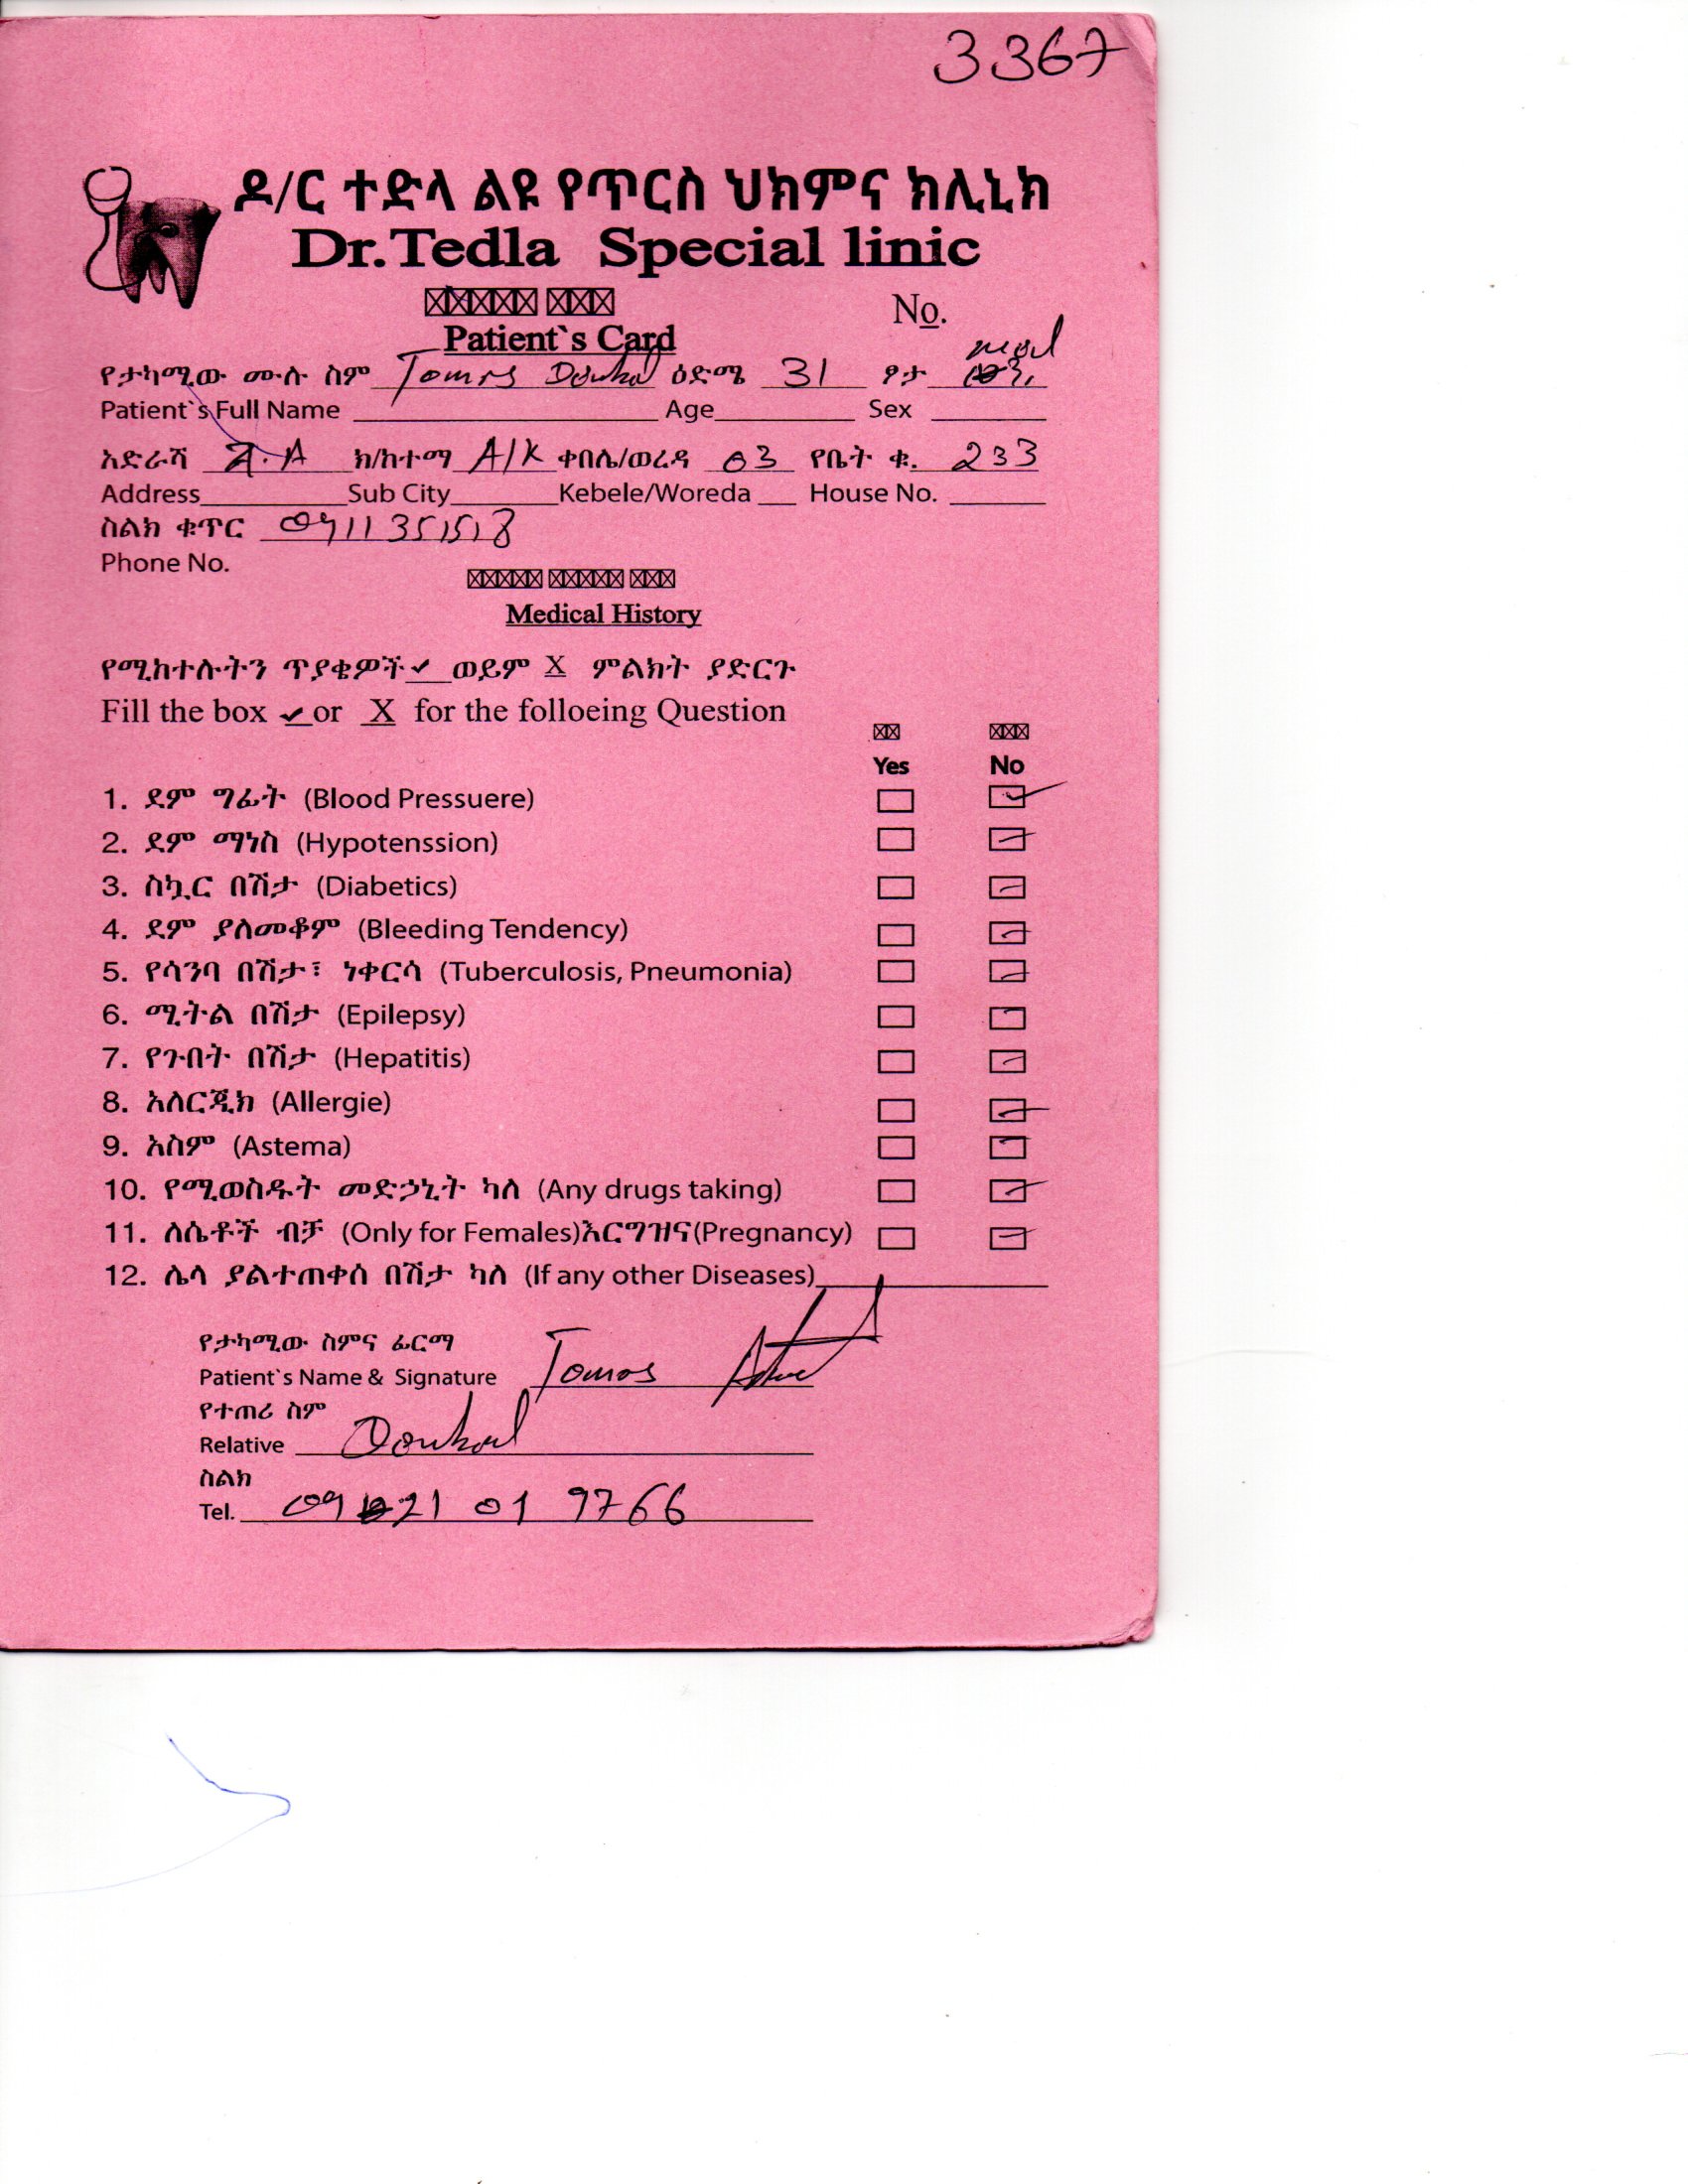 3367
ዶ/ር ተድላ ልዩ የጥርስ ህክምና ክሊኒክ
Dr.Tedla Special linic
No.
Patient`s Card
የታካሚው ሙሉ ስም ዕድሜ 31 ፆታ
Patient`s Full Name Age Sex
አድራሻ A.A ክ/ከተማ A/K ቀበሌ/ወረዳ 03 የቤት ቁ. 233
Address Sub City Kebele/Woreda House No.
ስልክ ቁጥር 0911351518
Phone No.
Medical History
የሚከተሉትን ጥያቄዎች ✓ ወይም X ምልክት ያድርጉ
Fill the box ✓ or X for the folloeing Question
Yes No
1. ደም ግፊት (Blood Pressuere)
2. ደም ማነስ (Hypotenssion)
3. ስኳር በሽታ (Diabetics)
4. ደም ያለመቆም (Bleeding Tendency)
5. የሳንባ በሽታ፣ ነቀርሳ (Tuberculosis, Pneumonia)
6. ሚትል በሽታ (Epilepsy)
7. የጉበት በሽታ (Hepatitis)
8. አለርጂክ (Allergie)
9. አስም (Astema)
10. የሚወስዱት መድኃኒት ካለ (Any drugs taking)
11. ለሴቶች ብቻ (Only for Females)እርግዝና(Pregnancy)
12. ሌላ ያልተጠቀሰ በሽታ ካለ (If any other Diseases)
የታካሚው ስምና ፊርማ
Patient`s Name & Signature
የተጠሪ ስም
Relative
ስልክ
Tel. 0921 01 9766